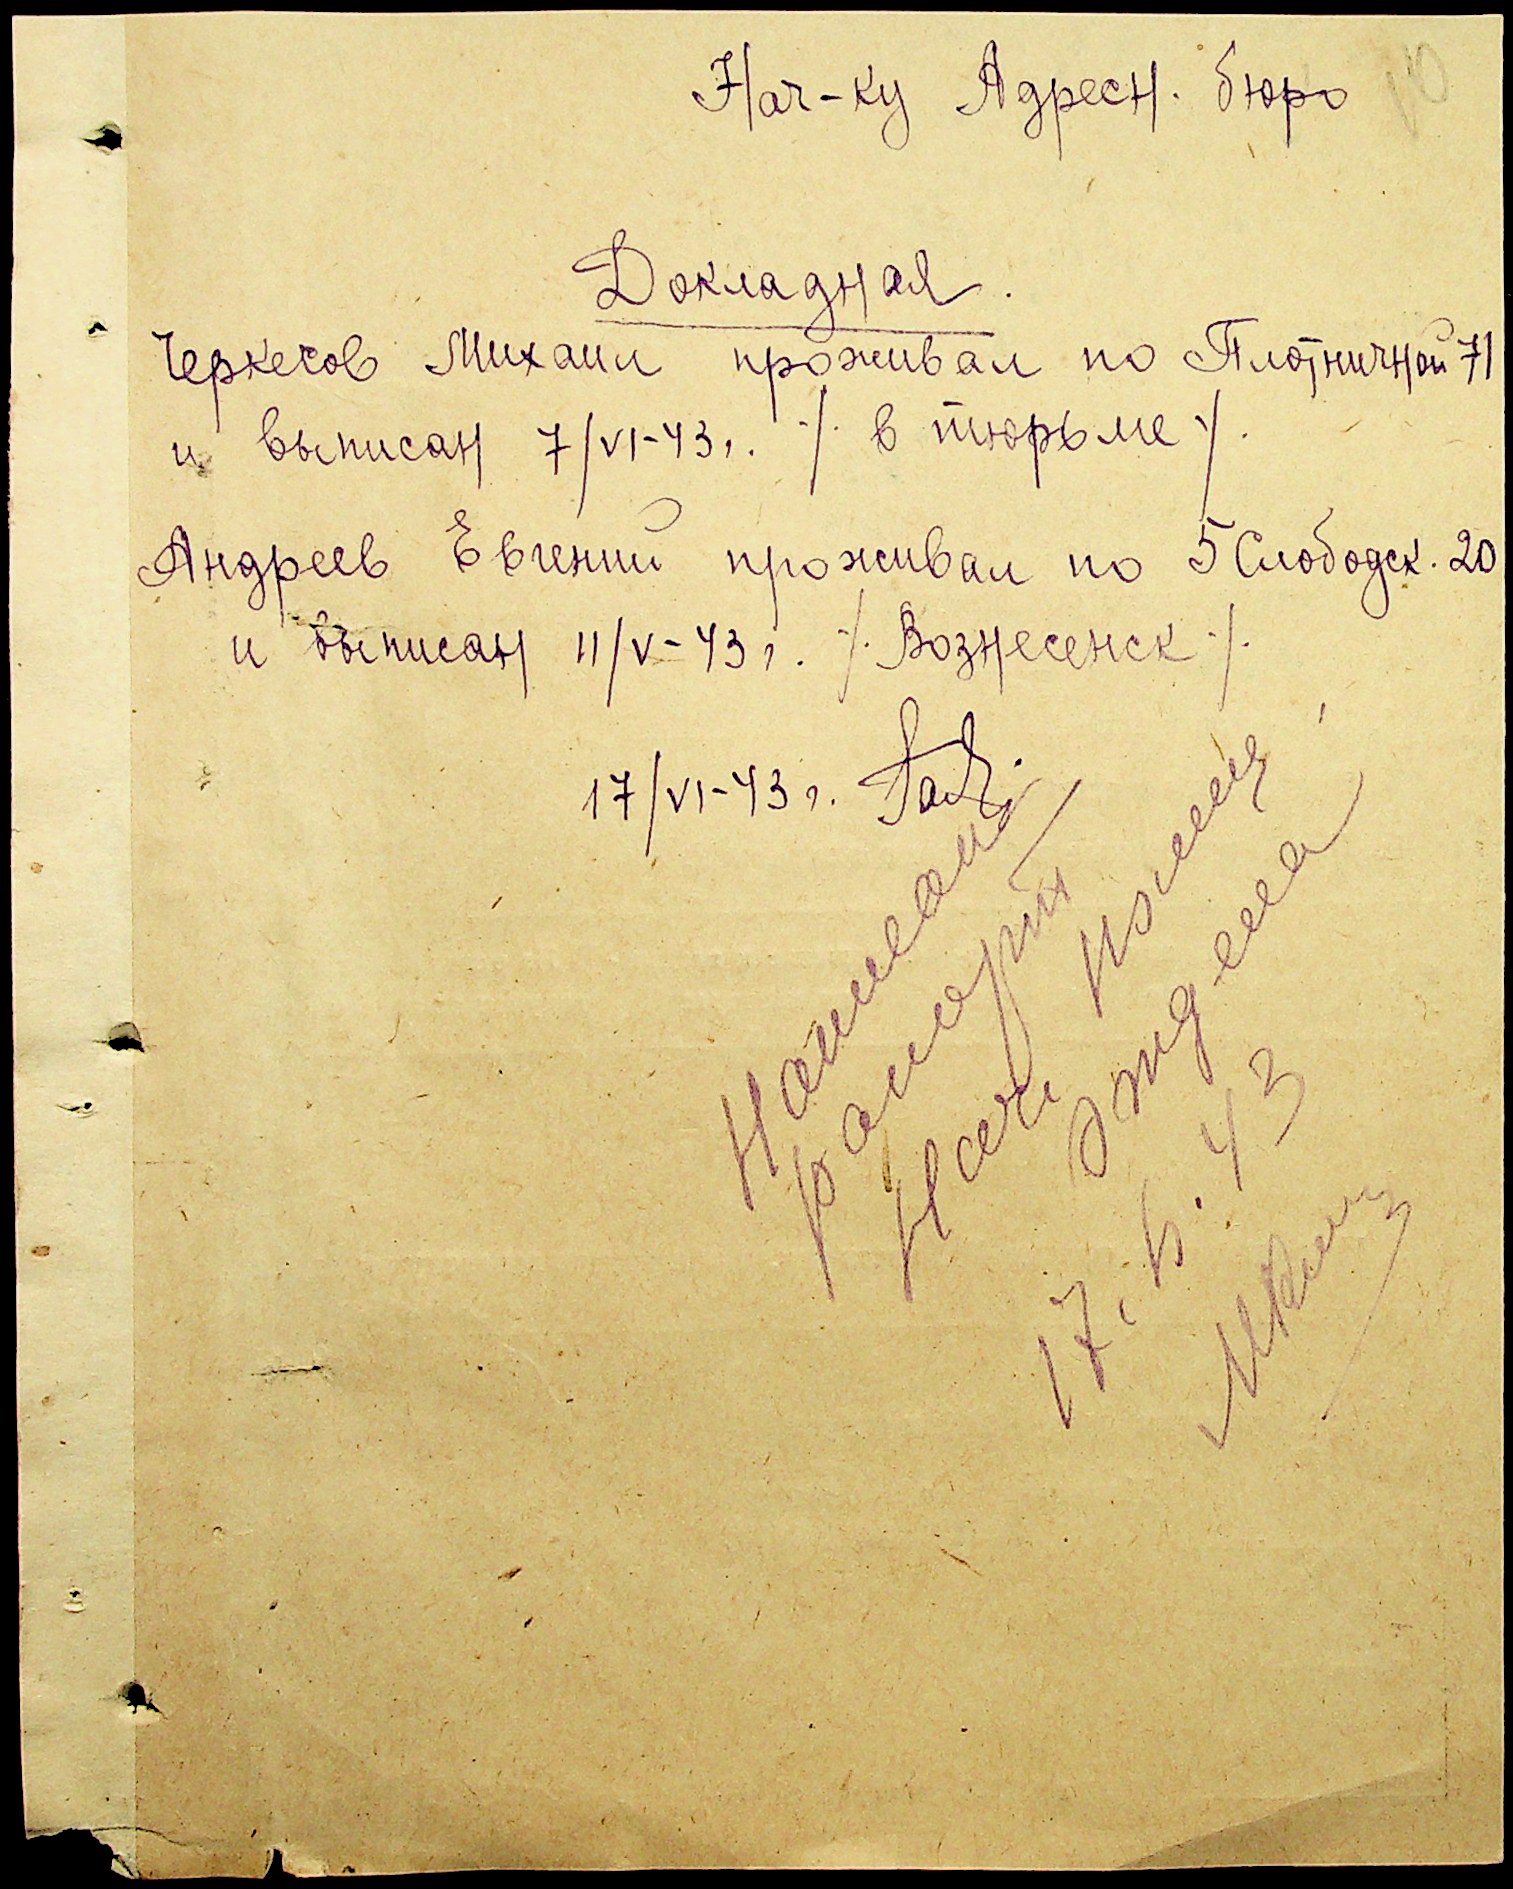 Нач-ку Адресн. бюро
Докладная.
Черкесов Михаил проживал по Плотничной 71
и выписан 7/VI-43 г. /. в тюрьме /.
Андреев Евгений проживал по 5 Слободск. 20
и выписан 11/V-43 г. /. Вознесенск /.
17/VI-43 г.
Написан
рапорт
Нач.
отдела
17.6.43